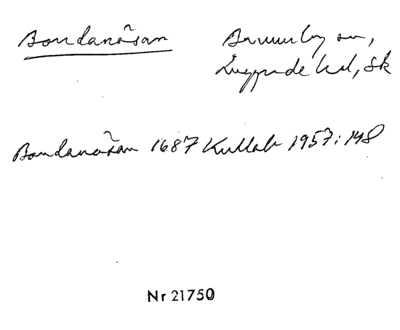 Bondanåsan Brunnby sn,
Luggude hd, Sk
Bondanåsan 1687 Kullab 1957:148
Nr 21750